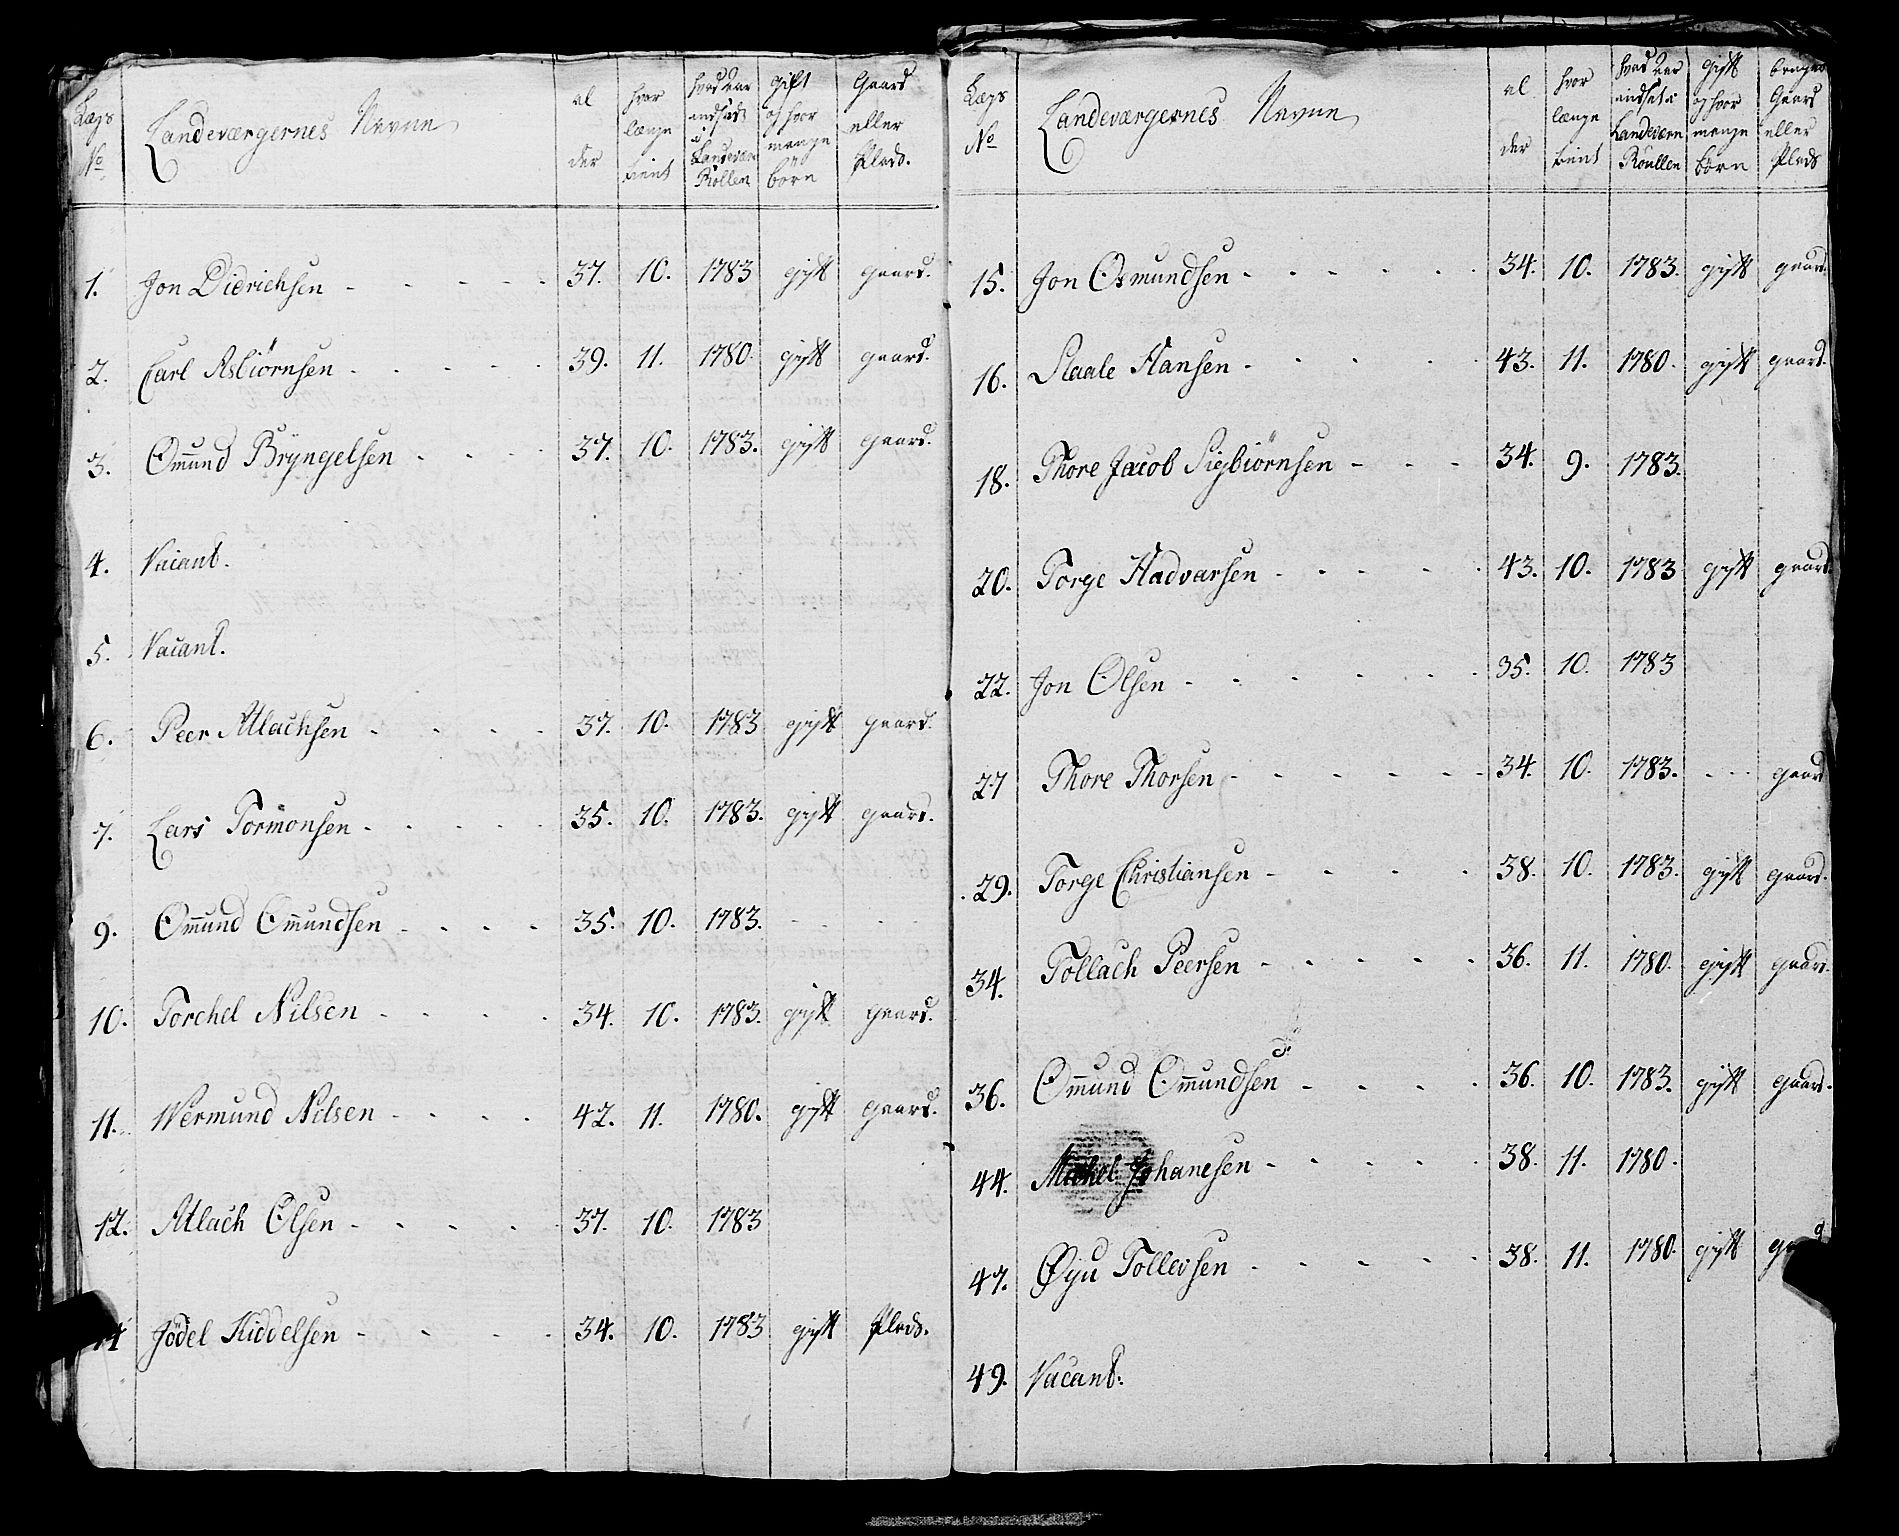 Lægs No | Landeværgernes Navne | al der | hvor længe tient | hvad Aar indsat i Landeværn Rollen | gift og hvor mange börn | Gaard eller Plads.
1. Jon Didrichsen - - - - - 37. 10. 1783 gift gaard.
2. Carl Asbiörnsen - - - - - 39. 11. 1780. gift gaard.
3. Om̄und Bryngelsen - - - - 37. 10. 1783. gift gaard.
4. Vacant.
5. Vacant.
6. Peer Atlachsen - - - - 37. 10. 1783 gift gaard.
7. Lars Tormonsen - - - - - 35. 10. 1783. gift gaard.
9. Om̄und Om̄undsen - - - - 35. 10. 1783. - -
10. Torchel Nilsen - - - - 34. 10. 1783. gift gaard.
11. Wermund Nilsen - - - - 42. 11. 1780. gift gaard.
12. Atlach Olsen - - - - - 37. 10. 1783
14 Jödel Kiddelsen - - - - 34. 10. 1783 gift Plads.
Lægs No | Landeværgernes Navne | al der | hvor længe tient | hvad Aar indsat i Landeværn Roullen | gift og hvor mange börn | bruger Gaard eller Plads
15. Jon Osmundsen - - - - - 34. 10. 1783. gift gaard.
16. Staale Hansen - - - - 43. 11. 1780. gift gaard.
18. Thore Jacob Sigbiörnsen - - - 34. 9. 1783.
20. Torge Hadvarsen - - - - - 43. 10. 1783 gift gaard.
22. Jon Olsen - - - - - - 35. 10. 1783
27 Thore Thorsen - - - - - - 34. 10. 1783. - - - gaard
29. Torge Christiansen - - - - 38. 10. 1783. gift gaard.
34. Tollach Peersen - - - - - 36. 11. 1780. gift gaard.
36. Om̄und Om̄undsen - - - - 36. 10. 1783. gift gaard.
44. Michel Johanesen - - - - - 38. 11. 1780.
47. Øyu Tollevsen - - - - - 38. 11. 1780. gift
49. Vacant.